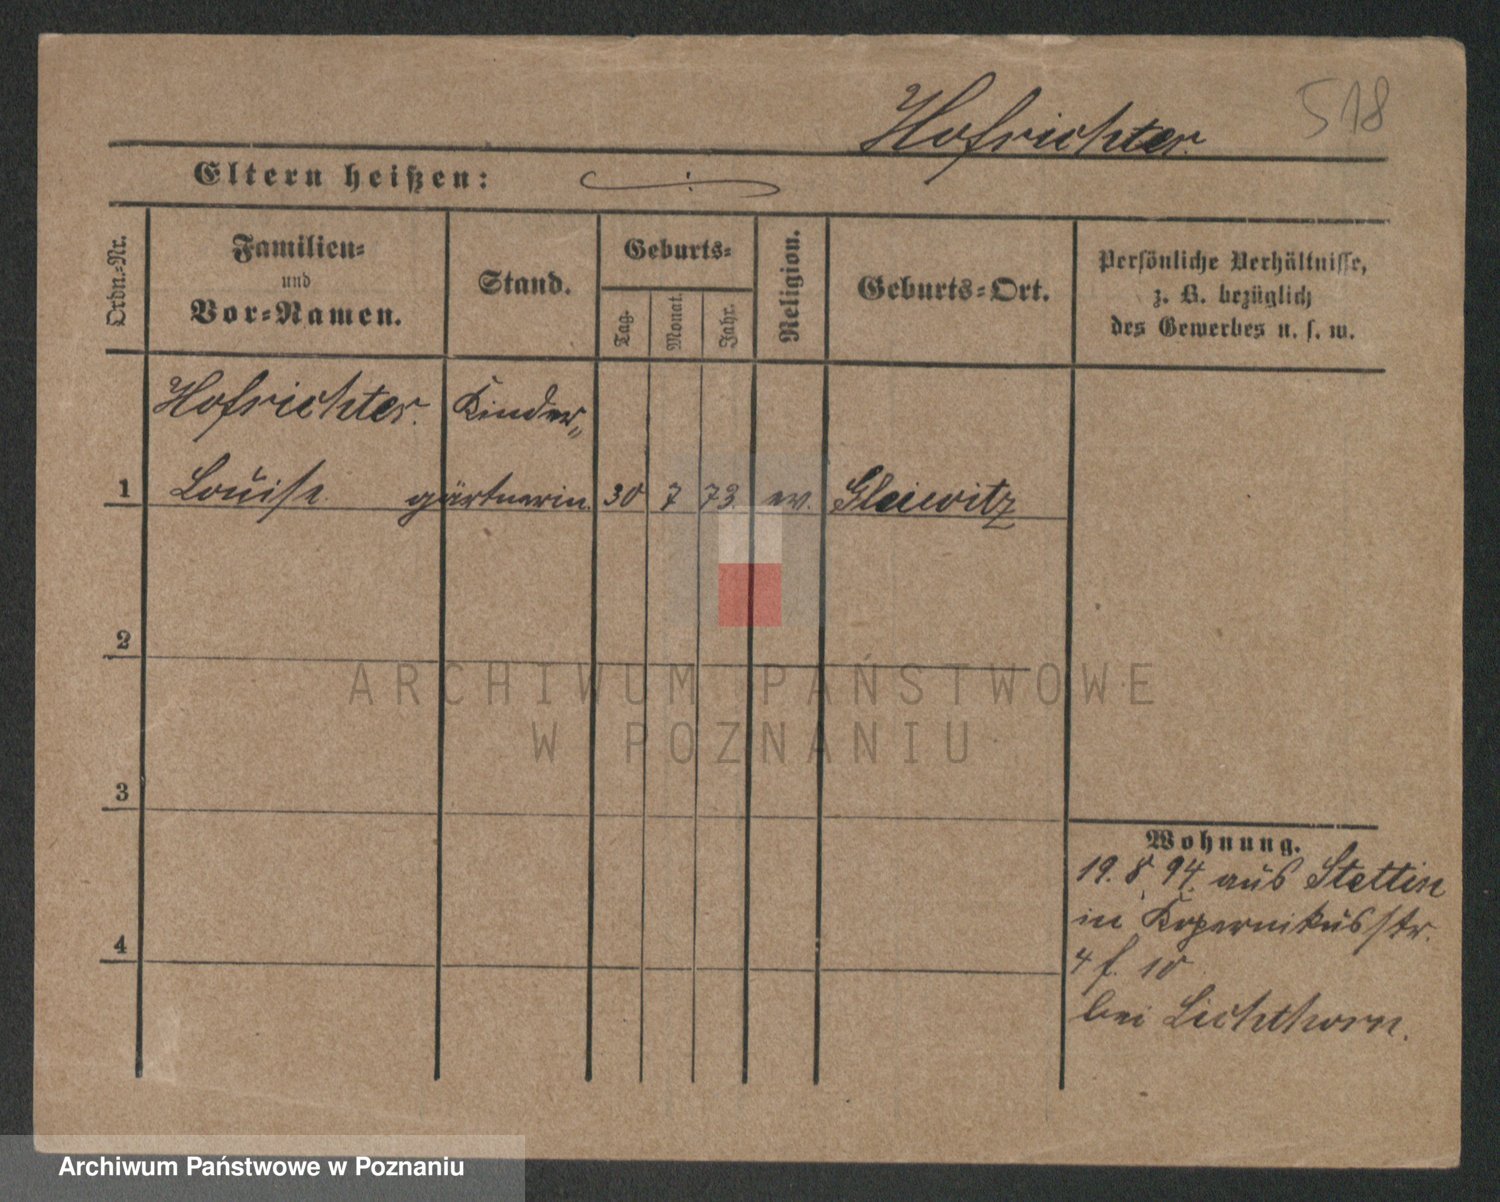 518
Hofrichter.
Eltern heißen:
Ordn.-Nr.
Familien-
und
Vor-Namen.
Stand.
Geburts-
Tag.
Monat.
Jahr.
Religion.
Geburts-Ort.
Persönliche Verhältnisse,
z. B. bezüglich
des Gewerbes u. s. w.
Hofrichter. Kinder„
1 Louise. gärtnerin. 30 7 73. ev. Gleiwitz
2
3
4
Wohnung.
19. 8. 94. aus Stettin
in Kopernikusstr.
4 f. 10
bei Lichthorn.
ARCHIWUM PAŃSTWOWE
W POZNANIU
Archiwum Państwowe w Poznaniu